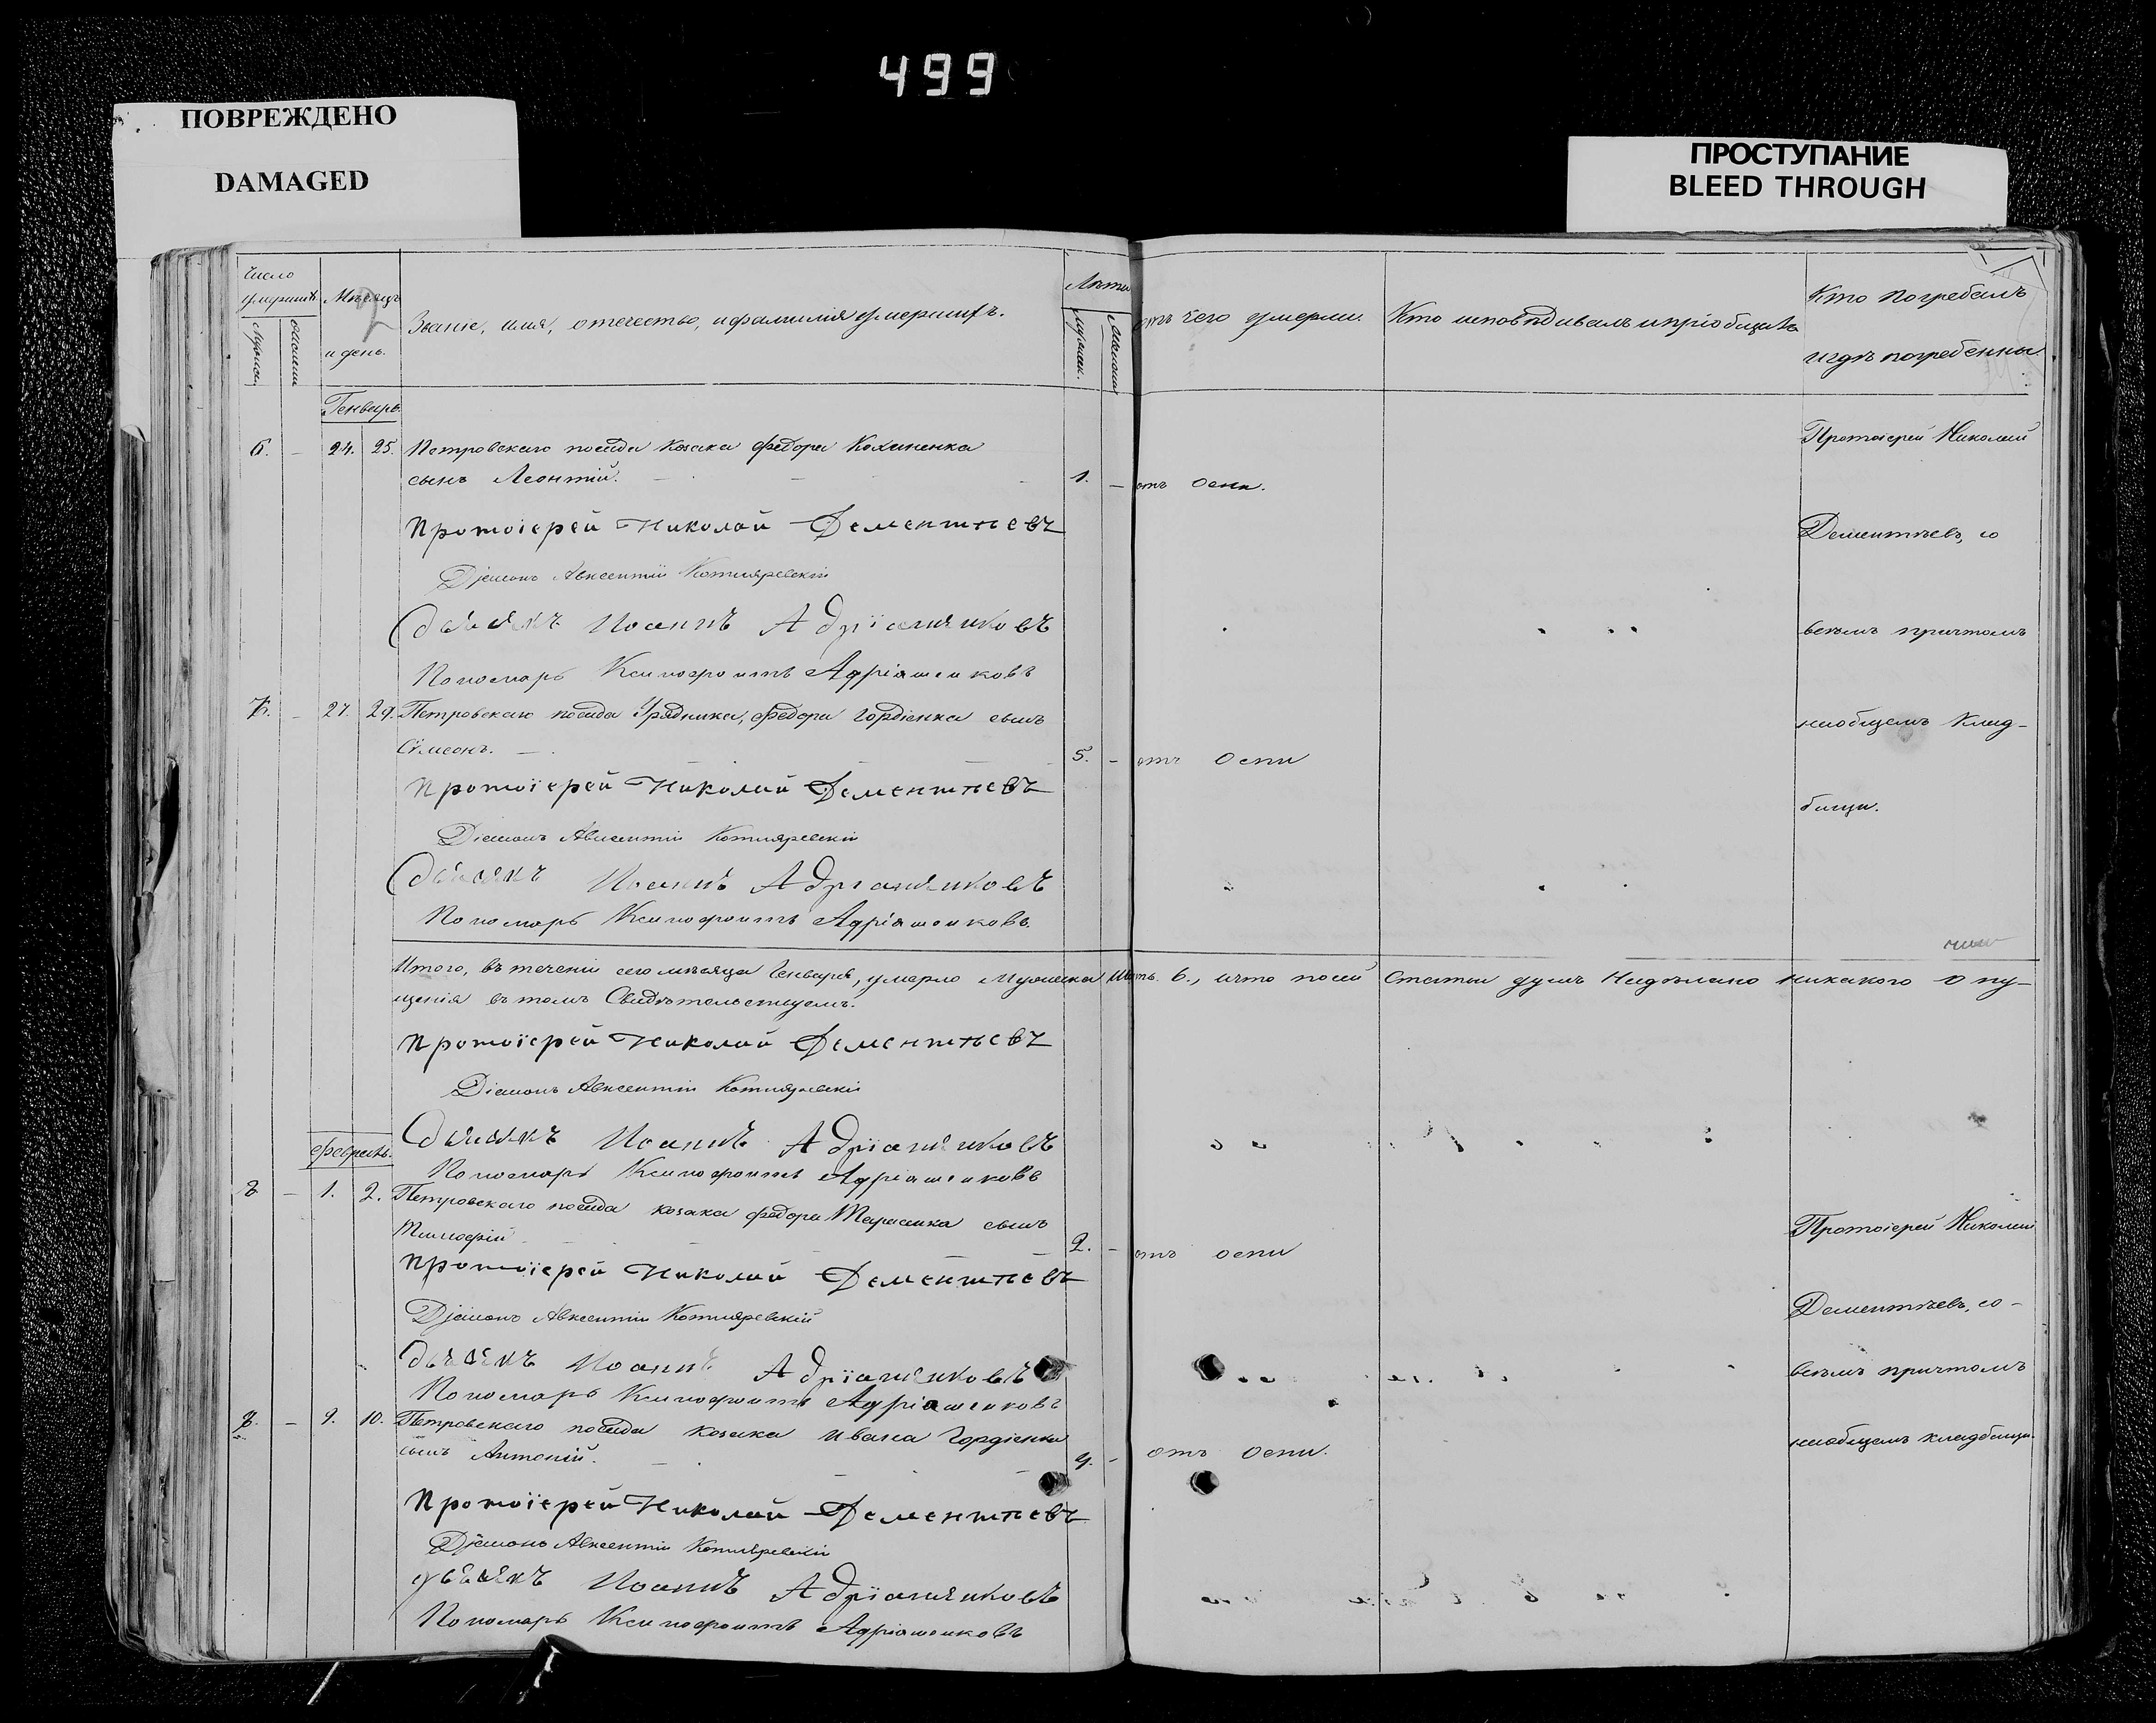 499
ПОВРЕЖДЕНО
DAMAGED
ПРОСТУПАНИЕ
BLEED THROUGH
Число умершихъ
Мужска.
Мѣсяцъ и день.
Званіе, имя, отечество, и фамилія умершихъ.
Лѣта
Мужеск.
Женска
отъ чего умерли.
Кто исповѣдывалъ и пріобщалъ
Кто погребалъ
и гдѣ погребены.
Генварь.
6. – 24. 25. Петровскаго посада козака Федора Коханенка
сынъ Леонтій. 1. – отъ оспи.
Протоіерей Николай Дементьевъ
Діаконъ Авксентій Котляревскій
Дьячекъ Иоаннъ Адріашенковъ
Пономарь Ксинофонтъ Адріашенковъ
Протоіерей Николай
Дементьевъ, со
всѣмъ причтомъ
на общемъ клад-
бищи.
7. – 27. 29. Петровскаго посада Урядника, Федора Гордіенка сынъ
Сѵмеонъ. 5. – отъ оспи
Протоіерей Николай Дементьевъ
Діаконъ Авксентій Котляревскій
Дьячекъ Иоаннъ Адріашенковъ
Пономарь Ксинофонтъ Адріашенковъ.
Итого, въ теченіи сего мѣсяца Генваря, умерло Мужеска 6., и что по сей Статьи душъ Недѣлано никакого опу-
щенія въ томъ Свидѣтельствуемъ.
Протоіерей Николай Дементьевъ
Діаконъ Авксентій Котляревскій
Дьячекъ Иоаннъ Адріашенковъ
Пономарь Ксинофонтъ Адріашенковъ
Февраль.
8 – 1. 2. Петровскаго посада козака Федора Тарасенка сынъ
Тимофій 2. – отъ оспи
Протоіерей Николай Дементьевъ
Діаконъ Авксентій Котляревскій
Дьячекъ Иоаннъ Адріашенковъ
Пономарь Ксинофонтъ Адріашенковъ
Протоіерей Николай
Дементьевъ, со-
всѣмъ причтомъ
на общемъ кладбищи.
9. – 9. 10. Петровскаго посада козака Ивана Гордіенка
сынъ Антоній. 4. – отъ оспи.
Протоіерей Николай Дементьевъ
Діаконъ Авксентій Котляревскій
Дьячекъ Иоаннъ Адріашенковъ
Пономарь Ксинофонтъ Адріашенковъ